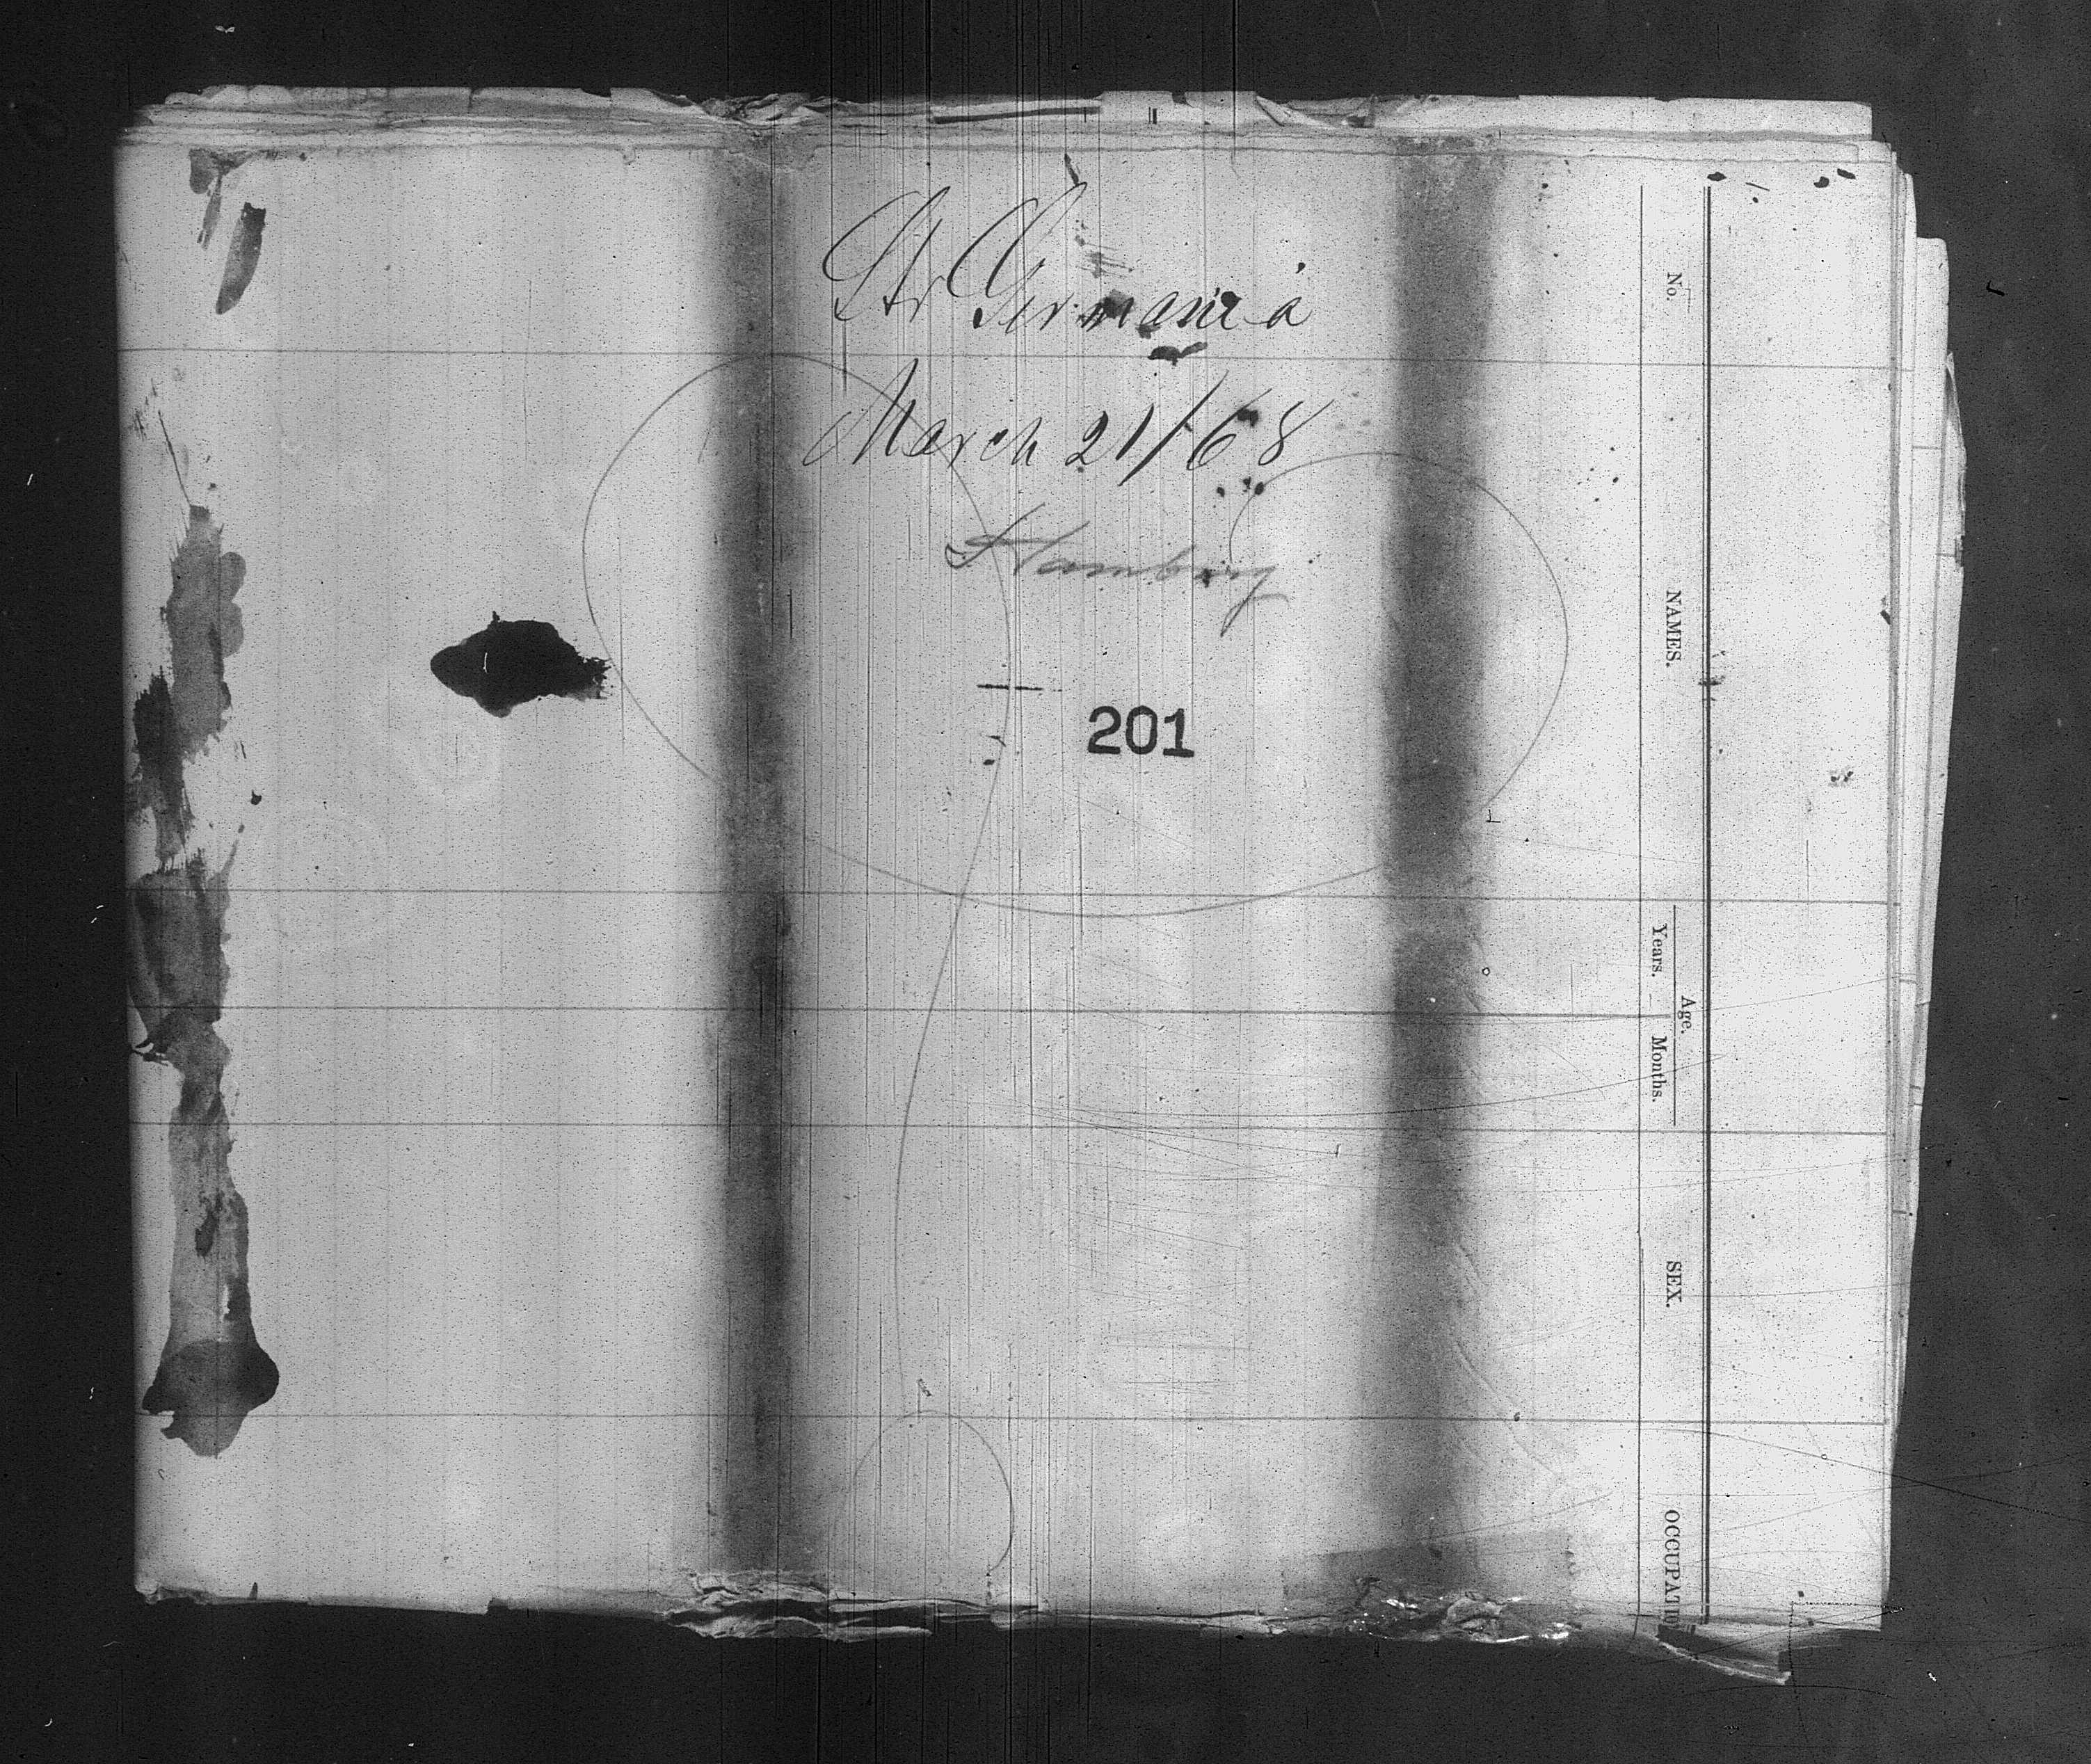 Str Germania
March 21/68
Hamburg
201
No.
NAMES.
Age.
Years.
Months.
SEX.
OCCUPATIO